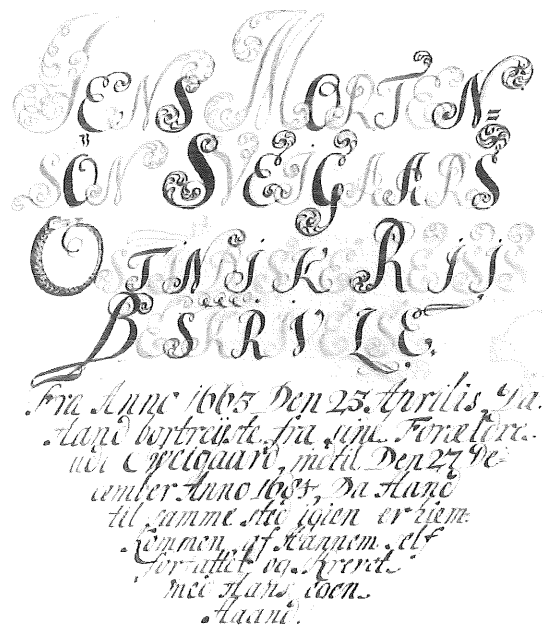 JENS MORTEN=
SÖN SVEIGAARS
OSTINDISKE REISIS
BESKRIVELSE.
Fra Anno 1663 Den 23 Aprilis, Da
Hand bortreiste fra sine Forældre
udi Sveigaard, indtil Den 27 De
cember Anno 1685, Da Hand
til samme sted igien er hiem
Kommen, af Hannem self
forfattet og Skrevet
med Hans egen
Haand.